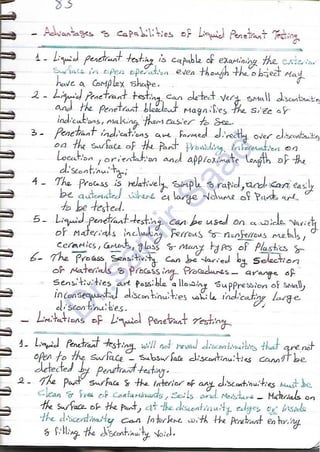 85
- Advantages & Capabilities of Liquid Penetrant Testing
1- Liquid penetrant testing is capable of examining the exterior
Surface in open operation even though the object may
have a Complex shape.
2- Liquid penetrant testing can detect very small discontinuities
and the penetrant bleedout magnifies the size of
indications, making them easier to see.
3- Penetrant indications are formed directly over discontinuities
on the surface of the Part Providing information on
Location, orientation and approximate length of the
discontinuity.
4- The Process is relatively simple & rapid, and can easily
be automated where a large volume of Parts are
to be tested.
5- Liquid penetrant testing can be used on a wide variety
of materials including Ferrous & nonferrous metals,
ceramics, Cermets, glass & many types of Plastics &
6- The Process Sensitivity Can be varied by Selection
of Materials & Processing Procedures - a range of
Sensitivities are Possible allowing suppression of small,
inconsequential discontinuities while indicating large
discontinuities.
- Limitations of Liquid Penetrant Testing
1. Liquid Penetrant testing will not reveal discontinuities that are not
open to the surface - Subsurface discontinuities cannot be
detected by penetrant testing.
2. The Part Surface & the Interior of any discontinuities must be
Clean & free of Contaminants, Soils and Moisture - Materials on
the Surface of the Part, at the discontinuity edges or inside
the discontinuity can Interfere with the Penetrant entering
& filling the discontinuity void.